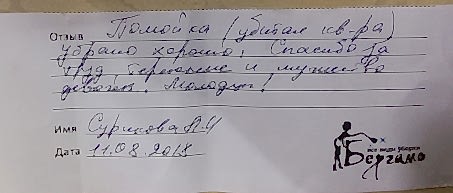 Отзыв Помойка (убитая кв-ра)
убрано хорошо! Спасибо за
труд, терпение и мужество
девочек. Молодцы!
Имя Сурикова А.Ч
Дата 11.08.2018
все виды уборки
Бергамо